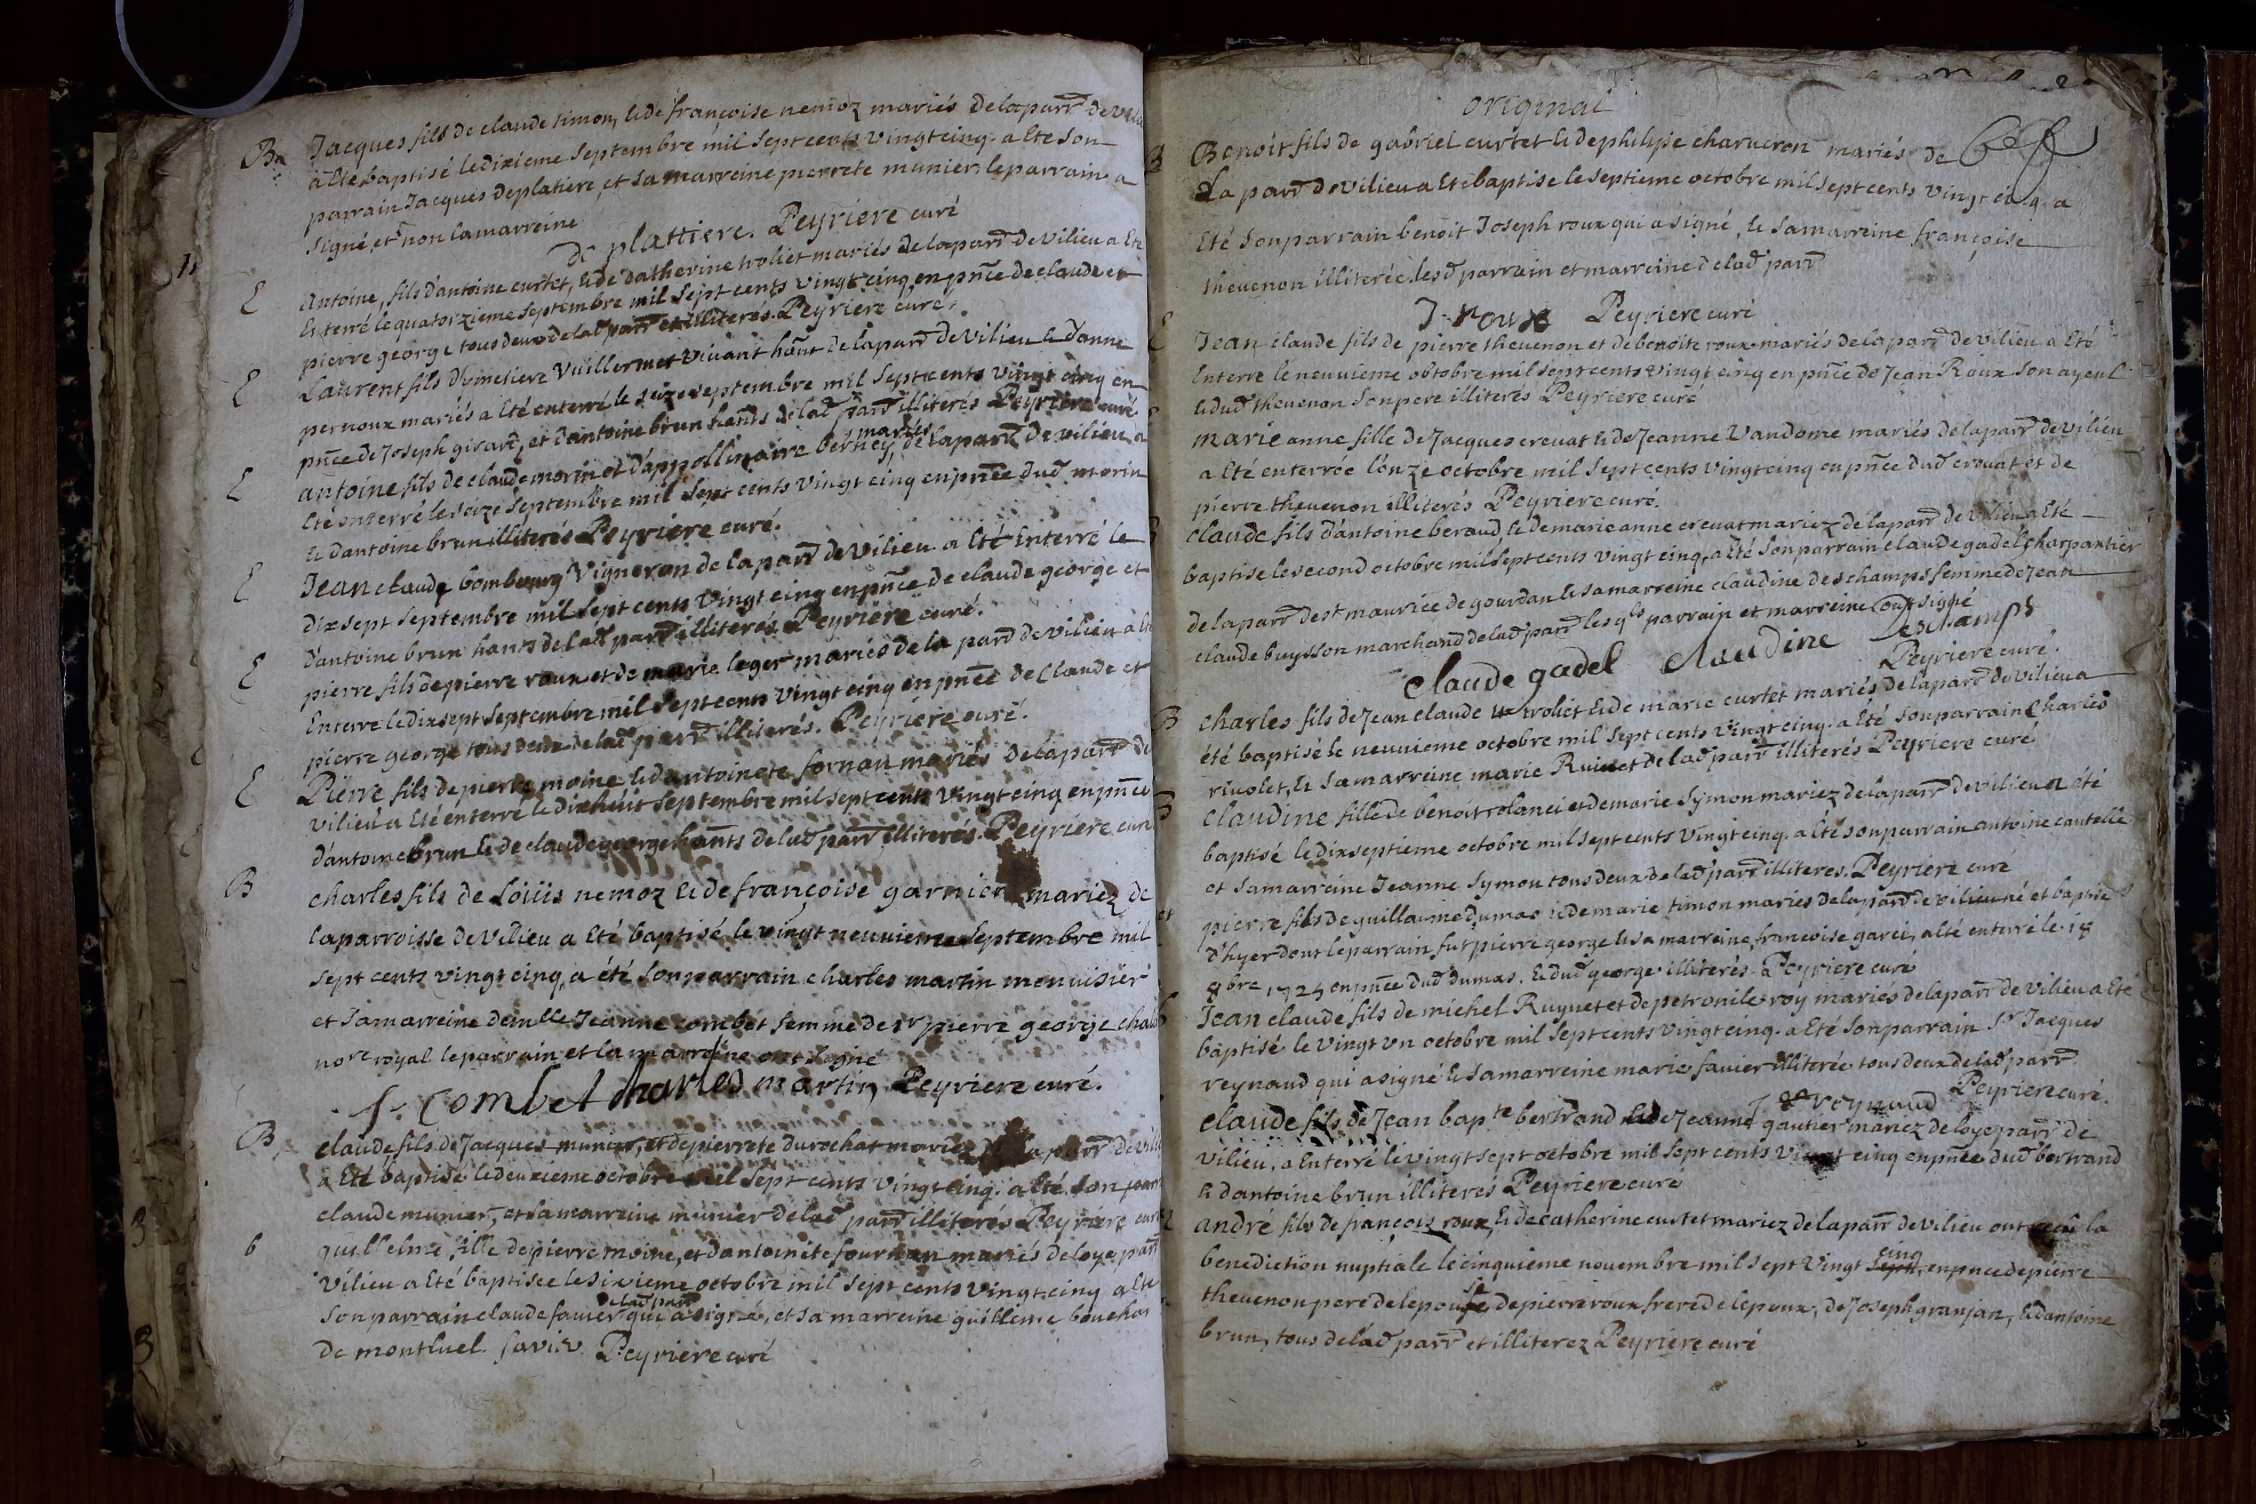 Ba Jacques fils de claude timon, & de françoise nemoz mariés de la parr̃ de
a Eté baptisé le dixieme Septembre mil Sept cents vingt cinq. a Eté Son
parrain Jacques deplatiere, et Sa marreine pierrete munier, le parrain a
Signé, et non la marreine
de plattiere. Peyriere curé
E Antoine, fils d'antoine curtet, & de Catherine troliet mariés de la parr̃ de Vilieu a Eté
Enterré le quatorzieme Septembre mil Sept cents vingt cinq en pñce de claude et
pierre george tous deux de lad̃ parr̃ et illiterés. Peyriere curé.
E Laurent fils d'himetiere Vuillermet Vivant hãnt de la parr̃ de Vilieu & d'anne
pernoux mariés a Eté enterré le seize septembre mil Sept cents vingt cinq en
pñce de Joseph girard, et d'antoine brun hãnts de lad̃ parr̃ illiterés Peyriere curé
mariés
E antoine fils de claude morin et d'appollinaire bertiey, de la parr̃ de vilieu, a
Eté enterré le seize Septembre mil Sept cents vingt cinq en pñce dud̃ morin
& d'antoine brun illiterés Peyriere curé.
E Jean claude bombourg Vigneron de la parr̃ de Vilieu a Eté Enterré le
dix sept Septembre mil Sept cents Vingt cinq en pñce de claude george et
d'antoine brun hants de lad̃ parr̃ illiterés Peyriere curé.
E pierre fils de pierre roux et de marie leger mariés de la parr̃ de Vilieu a Eté
Enterré le dix sept Septembre mil Sept cents vingt cinq en pñce de Claude et
pierre george tous deux de lad̃ parr̃ illiterés. Peyriere curé.
E Pierre fils de pierre moine & d'antoinete fornan mariés de la parr̃ de
vilieu a Eté enterré le dixhuit Septembre mil sept cents Vingt cinq en pñce
d'antoine brun & de claude george hãnts de lad̃ parr̃ illiterés. Peyriere curé
B charles fils de Loüis nemoz & de françoise garnier mariez de
la parroisse de Vilieu a Eté baptisé le vingt neuvieme Septembre mil
Sept cents vingt cinq, a été Son parrain charles martin menuisier
et Sa marreine demlle Jeanne combet femme de Sr pierre george
nore royal le parrain et la marreine ont Signé
J. Combet charles martin Peyriere curé.
B claude fils de Jacques munier, et de pierrete durochat mariez de la parr̃ de
a Eté baptisé le deuxieme octobre mil Sept cents vingt cinq. a Eté Son
claude munier, et Sa marreine munier de lad̃ parr̃ illiterés Peyriere curé
b guill'elme fille de pierre moine, et d'antoinete fournan mariés de loye parr̃
Vilieu a Eté baptisée le Sixieme octobre mil Sept cents vingt cinq a Eté
de lad̃ parr̃
Son parrain claude favier qui a Signé, et Sa marreine guilleme bouchar
de montluel. favier Peyriere curé
original
B Benoit fils de gabriel curtet & de philipe charveron mariés de
La parr̃ de vilieu a Eté baptisé le Septieme octobre mil Sept cents vingt cinq. a
Eté Son parrain benoit Joseph roux qui a Signé, & Sa marreine françoise
thevenon illiterée, lesd̃ parrain et marreine de lad̃ parr̃
J. roux Peyriere curé
E Jean claude fils de pierre thevenon et de benoite roux mariés de la parr̃ de vilieu a Eté
Enterré le neuvieme obtobre mil Sept cents vingt cinq en pñce de Jean Roux Son ayeul
& dud̃ thevenon Son pere illiterés Peyriere curé
E marie anne fille de Jacques crevat & de Jeanne Vandome mariés de la parr̃ de vilieu
a Eté enterrée l'onze octobre mil Sept cents vingt cinq en pñce dud̃ crevat et de
pierre thevenon illiterés Peyriere curé.
B claude fils d'antoine beraud, & de marie anne crevat mariez de la parr̃ de Vilieu a Eté
baptisé le second octobre mil Sept cents vingt cinq, a Eté Son parrain claude gadel charpantier
de la parr̃ de st maurice de gourdan & sa marreine claudine deschamps femme de Jean
claude buysson marchand de lad̃ parr̃ lesqls parrain et marreine ont Signé
claude gadel claudine deschamps
Peyriere curé.
B charles fils de Jean claude troliet & de marie curtet mariés de la parr̃ de Vilieu a
été baptisé le neuvieme octobre mil Sept cents Vingt cinq. a Eté Son parrain Charles
rivolet, & Sa marreine marie Ruivet de lad̃ parr̃ illiterés Peyriere curé
B claudine fille de benoit rolanci et de marie Symon mariez de la parr̃ de vilieu a été
baptisé le dixseptieme octobre mil Sept cents vingt cinq. a Eté son parrain antoine cautelle
et Sa marreine Jeanne Symon tous deux de lad̃ parr̃ illiteres. Peyriere curé
et pierre fils de guillaume dumas & de marie timon mariés de la parr̃ de vilieu né et baptisé
d'hyer dont le parrain fut pierre george & sa marreine françoise garci, a Eté enterré le 18
8bre 1725 en pñce dud̃ dumas, & dud̃ george illiterés. Peyriere curé
B Jean claude fils de michel Ruynet et de petronile roy mariés de la parr̃ de vilieu a Eté
baptisé le Vingt un octobre mil Sept cents vingt cinq. a Eté Son parrain Sr Jacques
reynaud qui a signé & Sa marreine marie favier illiterée tous deux de lad̃ parr̃
J reynaud Peyriere curé.
claude fils de Jean bapte bertrand & de Jeanne gautier mariez de loye parr̃ de
vilieu, a Enterré le vingt Sept octobre mil Sept cents vingt cinq en pñce dud̃ bertrand
& d'antoine brun illiterés Peyriere curé
andré fils de françois roux, & de catherine curtet mariez de la parr̃ de vilieu ont reçu la
cinq
benediction nuptiale le cinquieme novembre mil Sept Vingt Sept, en pnce de pierre
thevenon pere de lepouse, de pierre roux frere de lepoux, de Joseph granjan, & d'antoine
brun, tous de lad̃ parr̃ et illiterez Peyriere curé